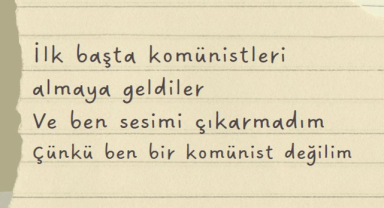 İlk başta komünistleri
almaya geldiler
Ve ben sesimi çıkarmadım
Çünkü ben bir komünist değilim